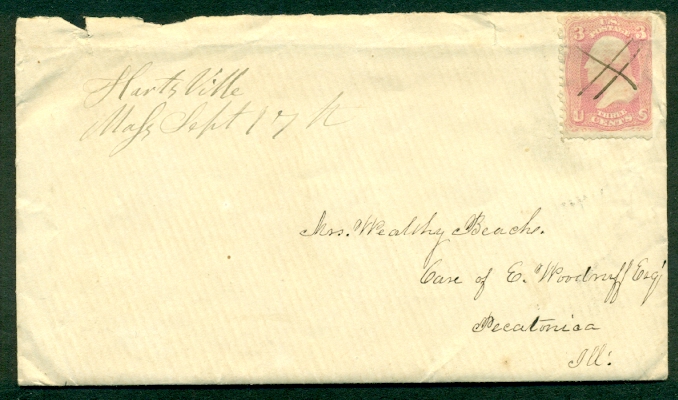 U.S.
POSTAGE
3 3
THREE
U CENTS S
Hartsville
Mass Sept 17th
Mrs. Wealthy Beach.
Care of E. Woodruff Esq
Pecatonica
Ill.